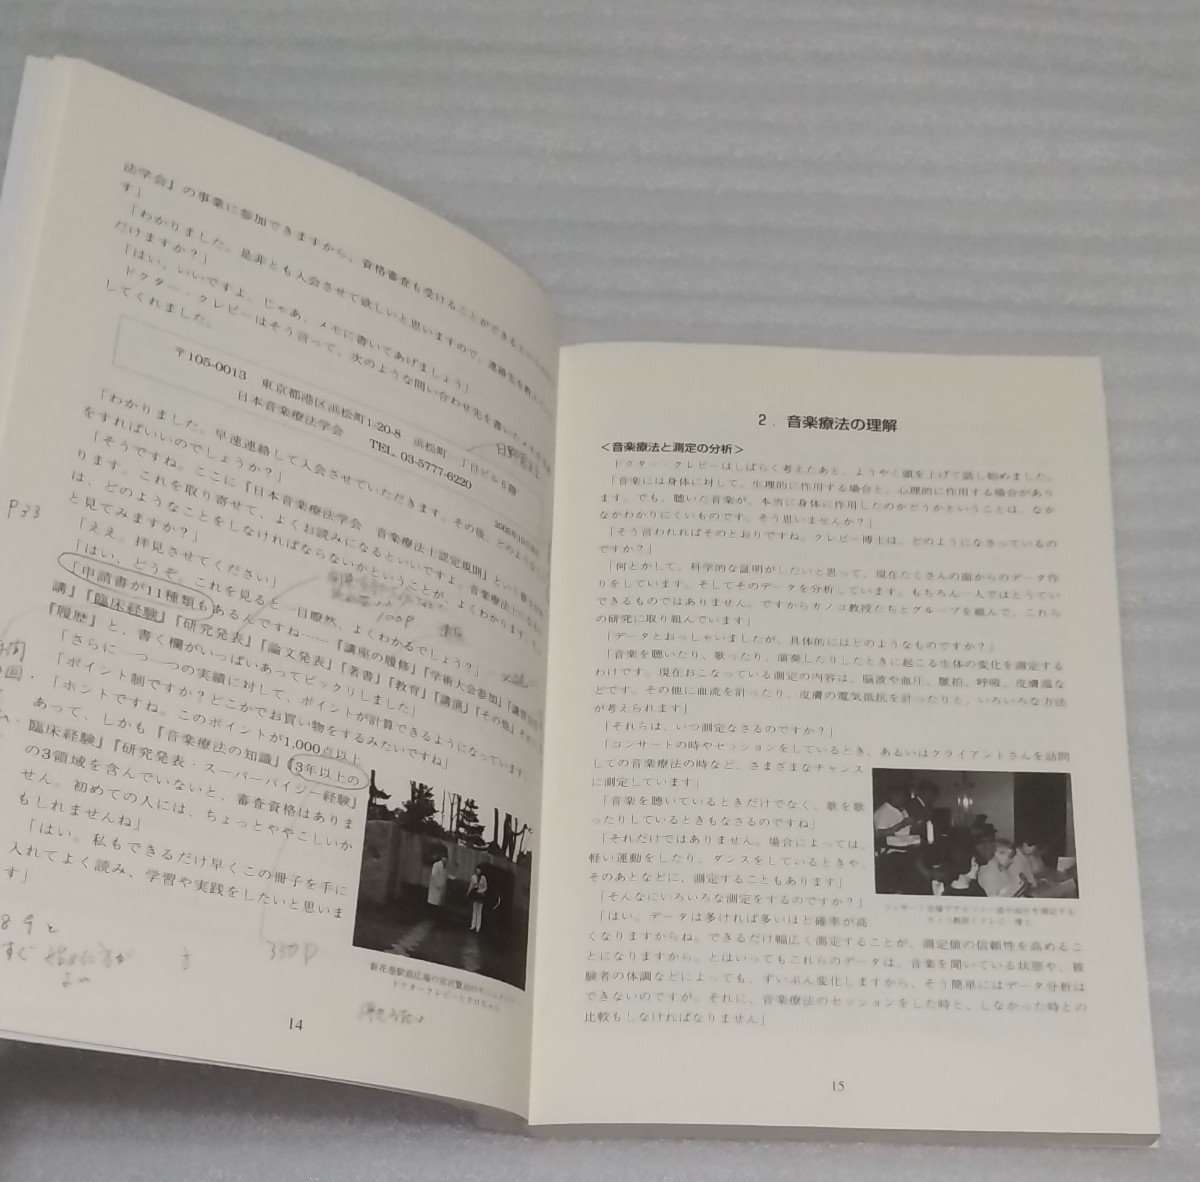 法学会』の事業に参加できますから、資格審査も受けることができるという
す」
「わかりました。是非とも入会させて欲しいと思いますので、連絡先を教えて
だけますか？」
「はい、いいですよ。じゃあ、メモに書いてあげましょう」
ドクター・クレピーはそう言って、次のような問い合わせ先を書いたメモを
してくれました。
〒105-0013 東京都港区浜松町1-20-8 浜松町一丁目ビル6階
日本音楽療法学会 TEL 03-5777-6220
「わかりました。早速連絡して入会させていただきます。その後、どのような
をすればいいのでしょうか？」
「そうですね。ここに『日本音楽療法学会 音楽療法士認定規則』という
ります。これを取り寄せて、よくお読みになるといいですよ。音楽療法士になる
は、どのようなことをしなければならないかということが、よくわかります。
と見てみますか？」
P33
「ええ。拝見させてください」
「はい、どうぞ。これを見ると一目瞭然、よくわかるでしょう？」
「申請書が11種類もあるんですね……『講座の履修』『学術大会参加』『講習会
講』『臨床経験』『研究発表』『論文発表』『著書』『教育』『講演』『その他』
『履歴』と、書く欄がいっぱいあってビックリしました」
「さらに一つ一つの実績に対して、ポイントが計算できるようになっています」
「ポイント制ですか？どこかでお買い物をするみたいですね」
「ホントですね。このポイントが1,000点以上
あって、しかも『音楽療法の知識』『3年以上の
臨床経験』『研究発表・スーパーバイジー経験』
の3領域を含んでいないと、審査資格はありま
せん。初めての人には、ちょっとややこしいか
もしれませんね」
「はい。私もできるだけ早くこの冊子を手に
入れてよく読み、学習や実践をしたいと思いま
す」
330P
14
2．音楽療法の理解
＜音楽療法と測定の分析＞
ドクター・クレピーはしばらく考えたあと、ようやく頭を上げて話し始めました。
「音楽には身体に対して、生理的に作用する場合と、心理的に作用する場合があり
ます。でも、聴いた音楽が、本当に身体に作用したのかどうかということは、なか
なかわかりにくいものです。そう思いませんか？」
「そう言われればそのとおりですね。クレピー博士は、どのようになさっているの
ですか？」
「何とかして、科学的な証明がしたいと思って、現在たくさんの面からのデータ作
りをしています。そしてそのデータを分析しています。もちろん一人ではとうてい
できるものではありません。ですからカノコ教授たちとグループを組んで、これら
の研究に取り組んでいます」
「データとおっしゃいましたが、具体的にはどのようなものですか？」
「音楽を聴いたり、歌ったり、演奏したりしたときに起こる生体の変化を測定する
わけです。現在おこなっている測定の内容は、脳波や血圧、脈拍、呼吸、皮膚温な
どです。その他に血流を計ったり、皮膚の電気抵抗を計ったりと、いろいろな方法
が考えられます」
「それらは、いつ測定なさるのですか？」
「コンサートの時やセッションをしているとき、あるいはクライアントさんを訪問
しての音楽療法の時など、さまざまなチャンス
に測定しています」
「音楽を聴いているときだけでなく、歌を歌
ったりしているときもなさるのですね」
「それだけではありません。場合によっては、
軽い運動をしたり、ダンスをしているときや、
そのあとなどに、測定することもあります」
「そんなにいろいろな測定をするのですか？」
「はい。データは多ければ多いほど確率が高
くなりますからね。できるだけ幅広く測定することが、測定値の信頼性を高めるこ
とになりますから。とはいってもこれらのデータは、音楽を聞いている状態や、被
験者の体調などによっても、ずいぶん変化しますから、そう簡単にはデータ分析は
できないのですが。それに、音楽療法のセッションをした時と、しなかった時との
比較もしなければなりません」
15